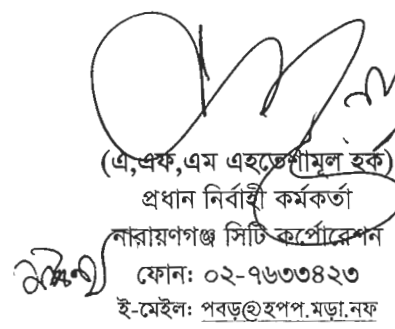 (এ,এফ,এম এহতেশামূল হক)
প্রধান নির্বাহী কর্মকর্তা
নারায়ণগঞ্জ সিটি কর্পোরেশন
ফোন: ০২-৭৬৩৩৪২৩
ই-মেইল: পবড়@হপপ.মড়া.নফ